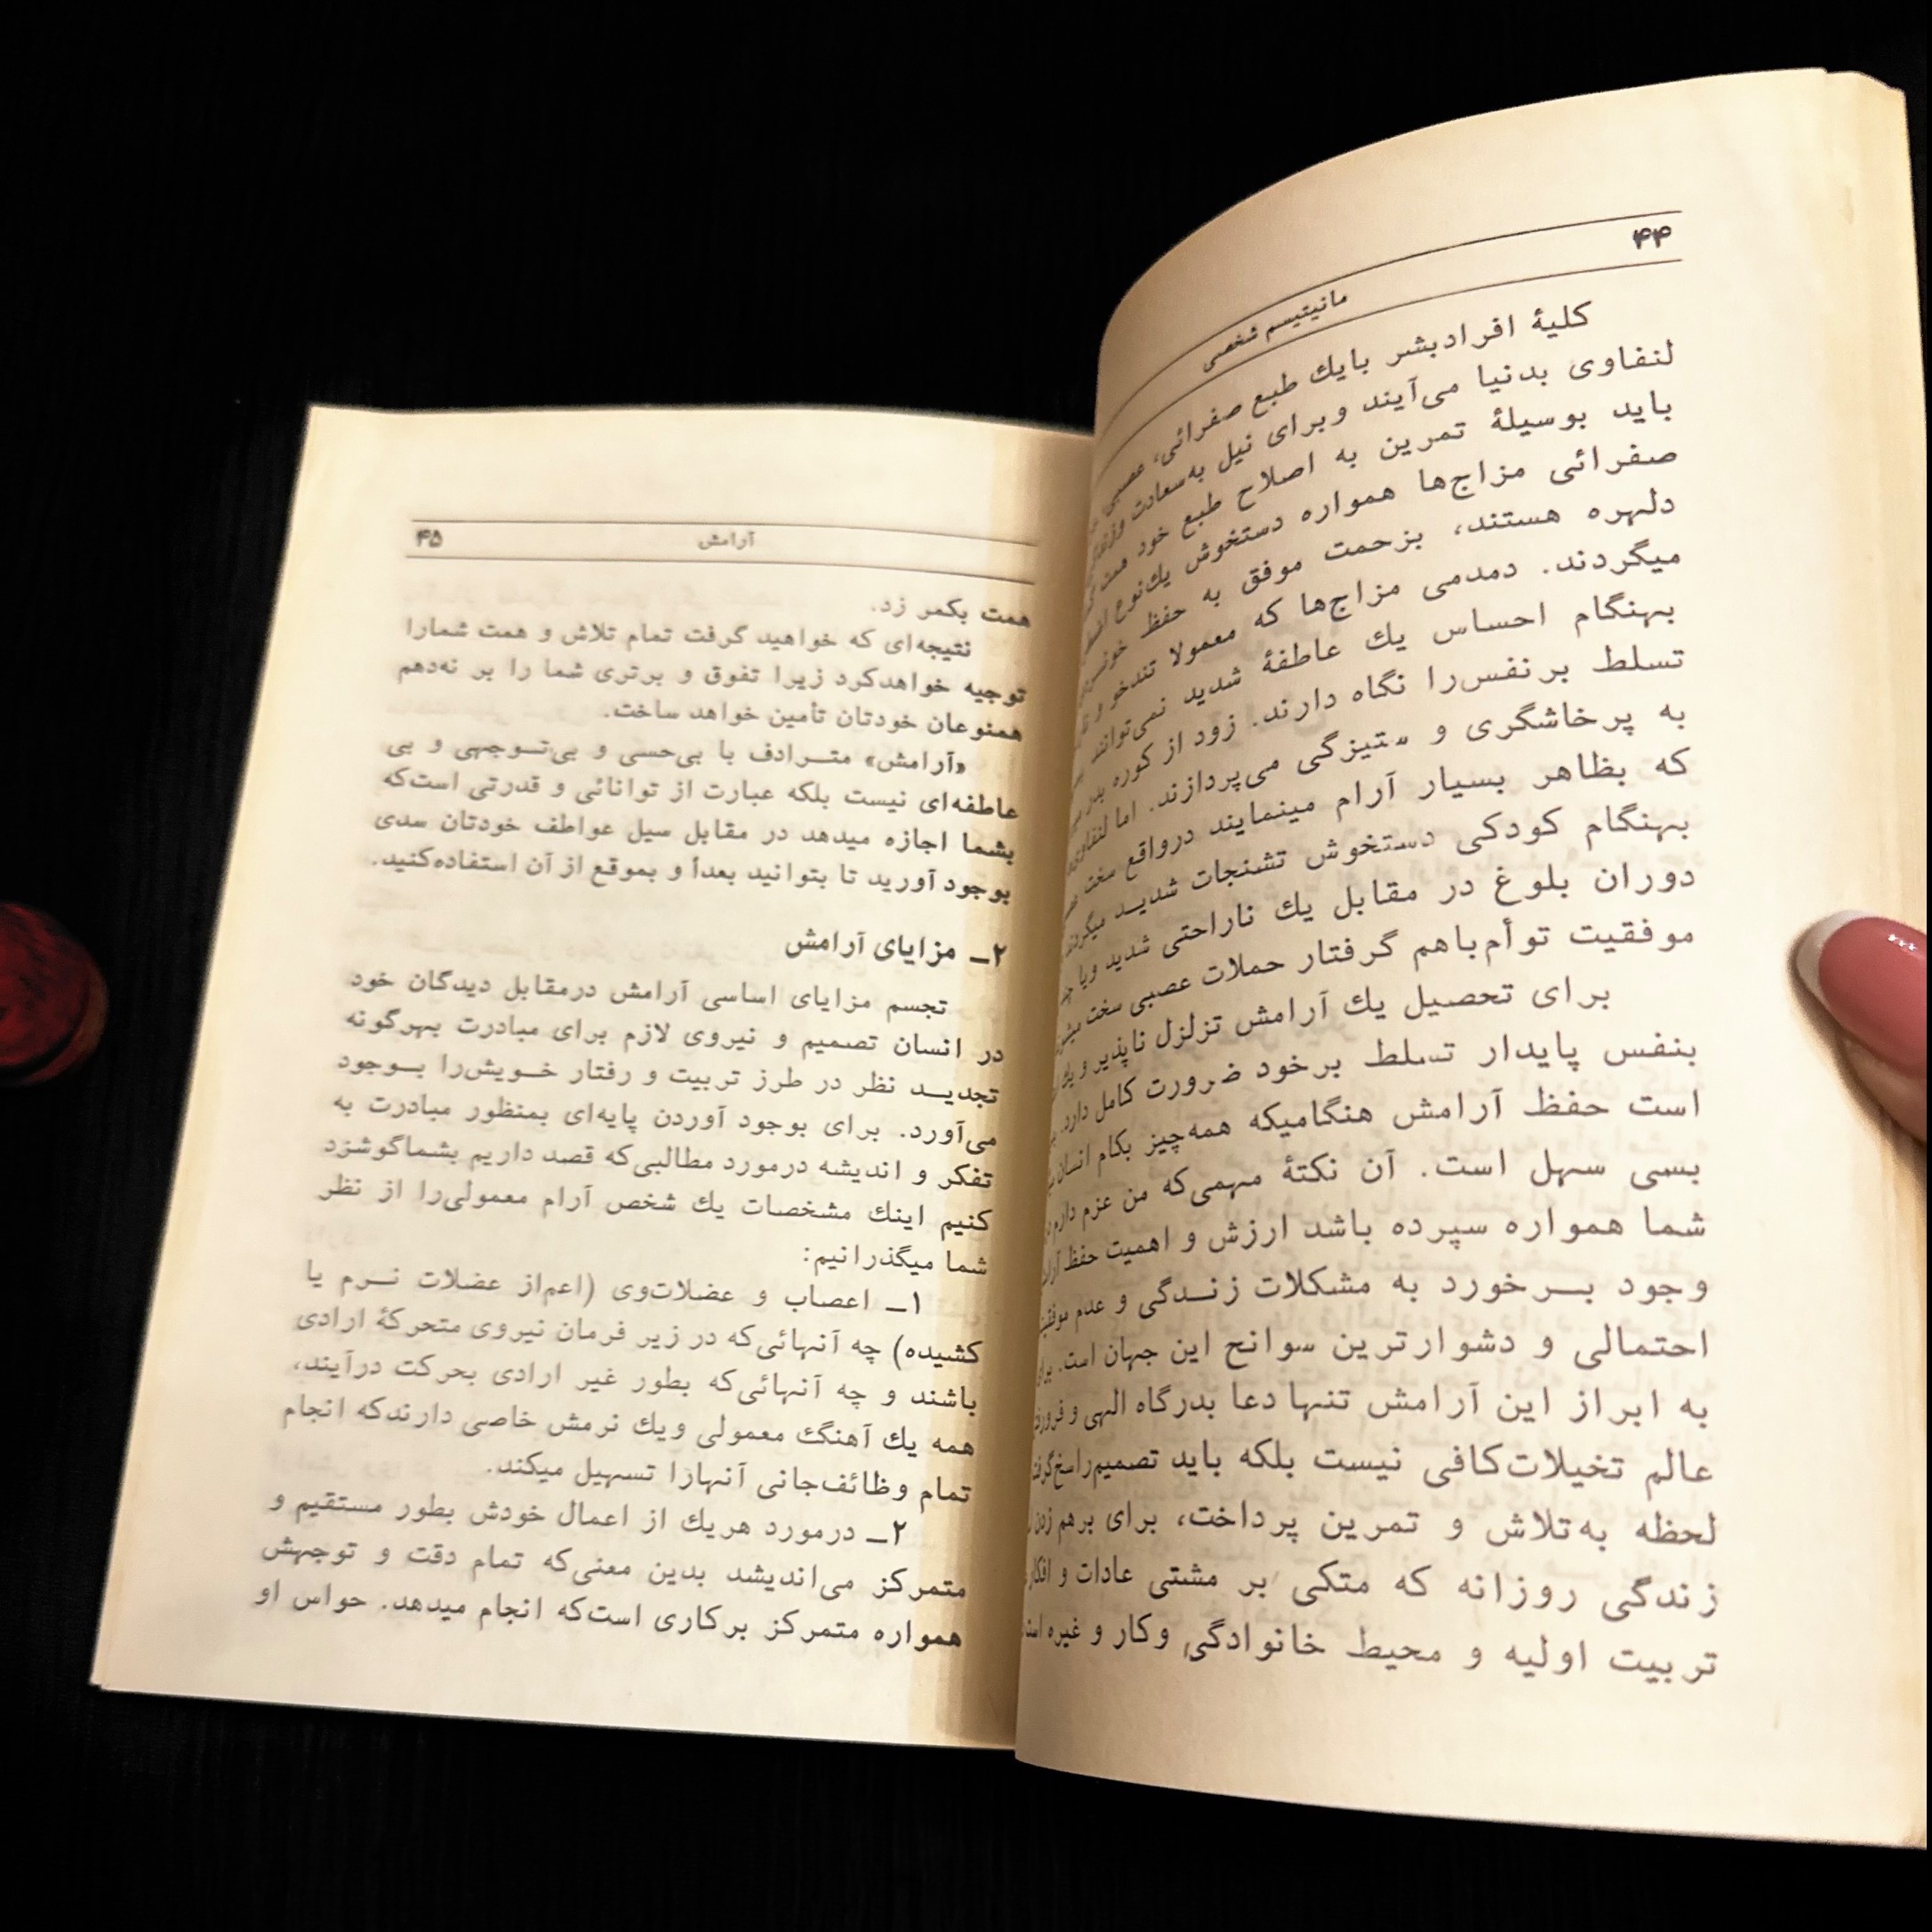 ۴۴
مانیتیسم شخصی
کلیهٔ افرادبشر بایك طبع صفرائی، عصبی،
لنفاوی بدنیا می‌آیند وبرای نیل به‌سعادت
باید بوسیلهٔ تمرین به اصلاح طبع خود همت
صفرائی مزاج‌ها همواره دستخوش یك‌نوع
دلهره هستند، بزحمت موفق به حفظ
میگردند. دمدمی مزاج‌ها که معمولا تندخو و
بهنگام احساس یك عاطفهٔ شدید نمی‌توانند
تسلط برنفس‌را نگاه دارند. زود از کوره بدر
به پرخاشگری و ستیزگی می‌پردازند. اما
که بظاهر بسیار آرام مینمایند درواقع سخت
بهنگام کودکی دستخوش تشنجات شدیــد میگردند
دوران بلوغ در مقابل یك ناراحتی شدید ویا
موفقیت توأم‌باهم گرفتار حملات عصبی سخت
برای تحصیل یك آرامش تزلزل ناپذیر و
بنفس پایدار تسلط برخود ضرورت کامل دارد.
است حفظ آرامش هنگامیکه همه‌چیز بکام انسان
بسی سهل است. آن نکتهٔ مهمی‌که من عزم دارم
شما همواره سپرده باشد ارزش و اهمیت حفظ
وجود بــرخورد به مشکلات زنــدگی و عدم
احتمالی و دشوارترین سوانح این جهان است.
به ابراز این آرامش تنها دعا بدرگاه الهی و
عالم تخیلات‌کافی نیست بلکه باید تصمیم‌راسخ
لحظه به‌تلاش و تمرین پرداخت، برای برهم زدن
زندگی روزانه که متکی بر مشتی عادات و
تربیت اولیه و محیط خانوادگی وکار و غیره
آرامش
۴۵
همت بکمر زد.
نتیجه‌ای که خواهید گرفت تمام تلاش و همت شمارا
توجیه خواهدکرد زیرا تفوق و برتری شما را بر نه‌دهم
همنوعان خودتان تأمین خواهد ساخت.
«آرامش» متــرادف با بی‌حسی و بی‌تــوجهی و بی
عاطفه‌ای نیست بلکه عبارت از توانائی و قدرتی است‌که
بشما اجازه میدهد در مقابل سیل عواطف خودتان سدی
بوجود آورید تا بتوانید بعدأ و بموقع از آن استفاده‌کنید.
۲ــ مزایای آرامش
تجسم مزایای اساسی آرامش درمقابل دیدگان خود
در انسان تصمیم و نیروی لازم برای مبادرت بهرگونه
تجدیــد نظر در طرز تربیت و رفتار خــویش‌را بــوجود
می‌آورد. برای بوجود آوردن پایه‌ای بمنظور مبادرت به
تفکر و اندیشه درمورد مطالبی‌که قصد داریم بشماگوشزد
کنیم اینك مشخصات یك شخص آرام معمولی‌را از نظر
شما میگذرانیم:
۱ــ اعصاب و عضلات‌وی (اعم‌از عضلات نــرم یا
کشیده) چه آنهائی‌که در زیر فرمان نیروی متحرکهٔ ارادی
باشند و چه آنهائی‌که بطور غیر ارادی بحرکت درآیند،
همه یك آهنگ معمولی ویك نرمش خاصی دارندکه انجام
تمام وظائف‌جانی آنهارا تسهیل میکند.
۲ــ درمورد هریك از اعمال خودش بطور مستقیم و
متمرکز می‌اندیشد بدین معنی‌که تمام دقت و توجهش
همواره متمرکز برکاری است‌که انجام میدهد. حواس او